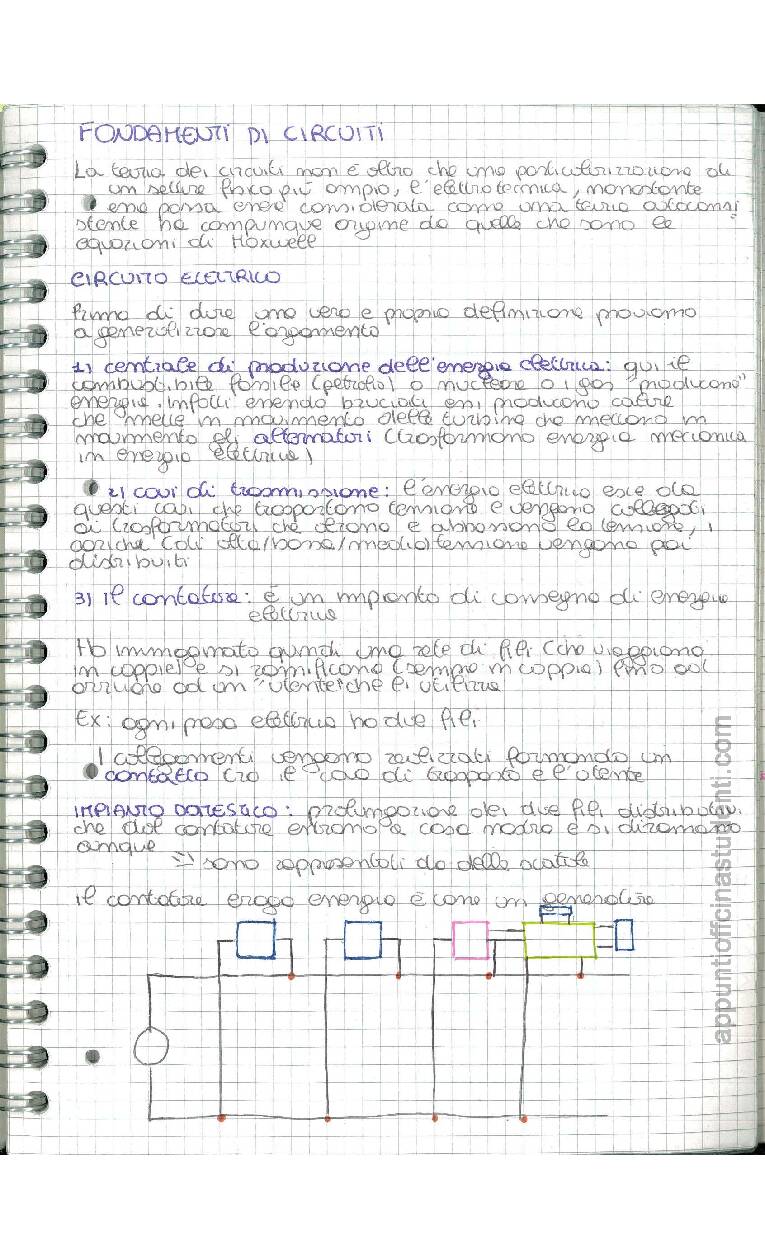 FONDAMENTI DI CIRCUITI
La teoria dei circuiti non è altro che una particolarizzazione di
un settore fisico più ampio, l'elettrotecnica, nonostante
essa possa essere considerata come una teoria autoconsi
stente ha comunque origine da quelle che sono le
equazioni di Maxwell
CIRCUITO ELETTRICO
Prima di dare una vera e propria definizione proviamo
a generalizzare l'argomento
1) centrale di produzione dell'energia elettrica: qui il
combustibile fossile (petrolio) o nucleare o i gas "producono"
energia. Infatti essendo bruciati essi producono calore
che mette in movimento delle turbine che mettono in
movimento gli alternatori (trasformano energia meccanica
in energia elettrica)
2) cavi di trasmissione: l'energia elettrica esce da
questi cavi che trasportano tensione e vengono collegati
ai trasformatori che alzano e abbassano la tensione, i
carichi (di alta/bassa/media) tensione vengono poi
distribuiti
3) il contatore: è un impianto di consegna di energia
elettrica
Ho immaginato quindi una rete di fili (che viaggiano
in coppie) e si ramificano (sempre in coppia) fino ad
arrivare ad un "utente" che li utilizza
Ex: ogni presa elettrica ha due fili
I collegamenti vengono realizzati formando un
contatto tra il cavo di trasporto e l'utente
IMPIANTO DOMESTICO: prolungazione dei due fili distributivi
che dal contatore entrano a casa nostra e si diramano
ovunque
=> sono rappresentati da delle scatole
il contatore eroga energia è come un generatore
appuntiofficinastudenti.com